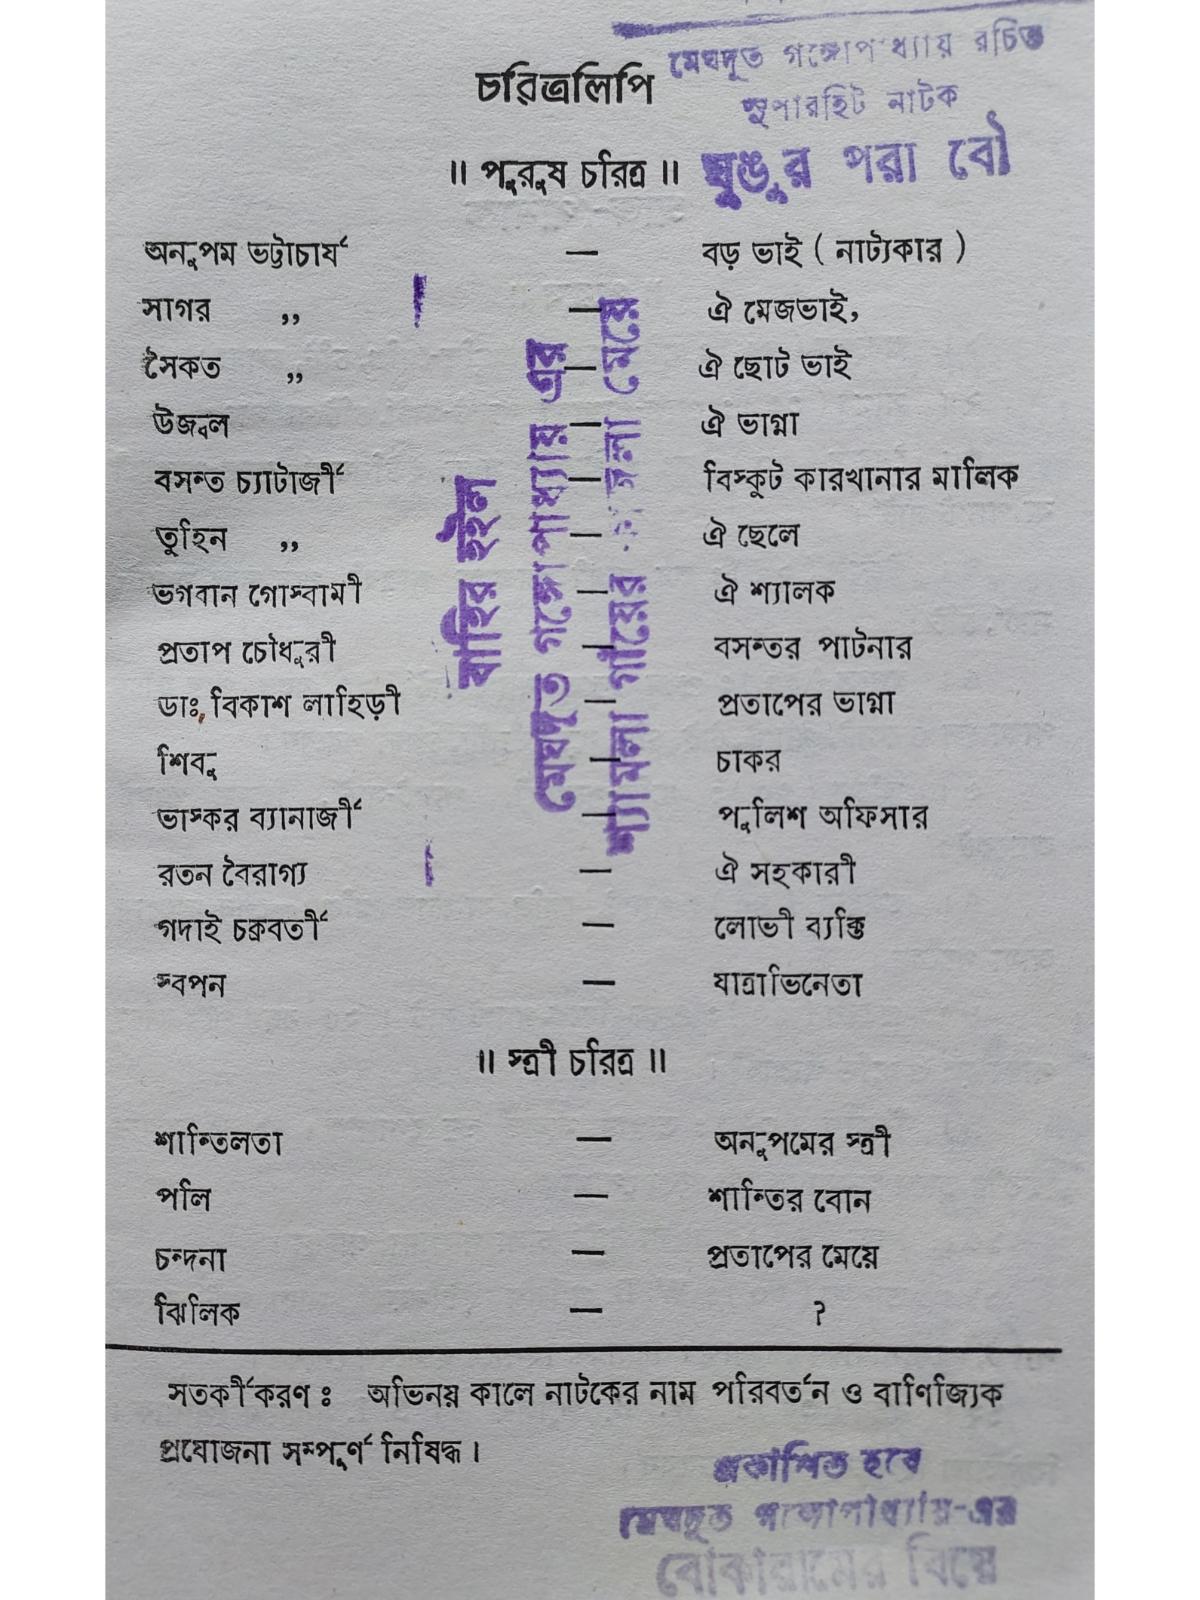 মেঘদূত গঙ্গোপাধ্যায় রচিত
সুপারহিট নাটক
ঘুঙুর পরা বৌ
চরিত্রলিপি
॥ পুরুষ চরিত্র ॥
অনুপম ভট্টাচার্য — বড় ভাই ( নাট্যকার )
সাগর ,, — ঐ মেজভাই,
সৈকত ,, — ঐ ছোট ভাই
উজ্বল — ঐ ভাগ্না
বসন্ত চ্যাটার্জী — বিস্কুট কারখানার মালিক
তুহিন ,, — ঐ ছেলে
ভগবান গোস্বামী — ঐ শ্যালক
প্রতাপ চৌধুরী — বসন্তর পাটনার
ডাঃ বিকাশ লাহিড়ী — প্রতাপের ভাগ্না
শিবু — চাকর
ভাস্কর ব্যানার্জী — পুলিশ অফিসার
রতন বৈরাগ্য — ঐ সহকারী
গদাই চক্রবর্তী — লোভী ব্যক্তি
স্বপন — যাত্রাভিনেতা
বাহির হইল
মেঘদূত গঙ্গোপাধ্যায় এর
শ্যামলা গাঁয়ের মেয়ে
॥ স্ত্রী চরিত্র ॥
শান্তিলতা — অনুপমের স্ত্রী
পলি — শান্তির বোন
চন্দনা — প্রতাপের মেয়ে
ঝিলিক — ?
সতর্কীকরণ ঃ অভিনয় কালে নাটকের নাম পরিবর্তন ও বাণিজ্যিক
প্রযোজনা সম্পূর্ণ নিষিদ্ধ।
প্রকাশিত হবে
মেঘদূত গঙ্গোপাধ্যায়-এর
বোকারামের বিয়ে